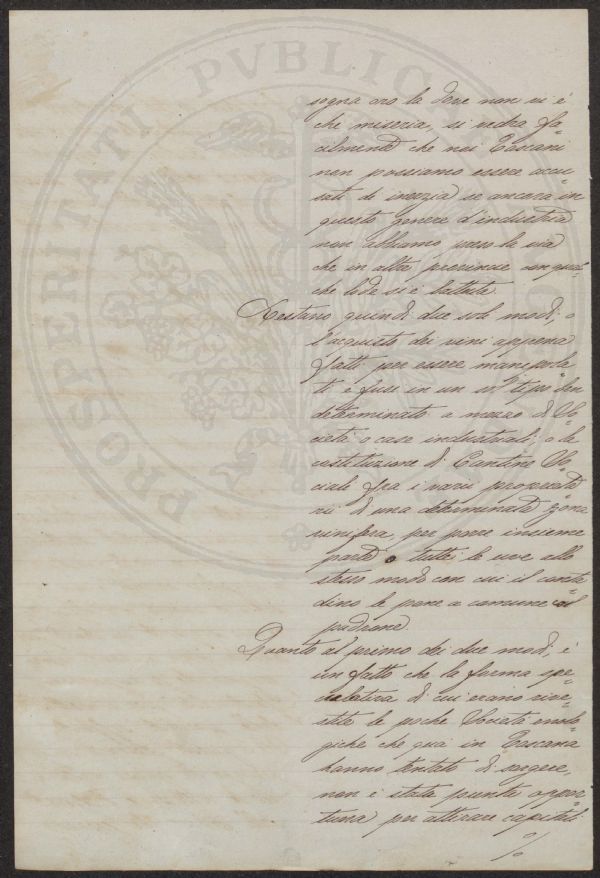 sogna oro la dove non vi è
che miseria, si vedrà fa=
cilmente che noi Toscani
non possiamo essere accu=
sati di inerzia se ancora in
questo genere d'industria
non abbiamo preso la via
che in altre provincie con qual=
che lode si è battuta.
Restano quindi due soli modi, o
l'acquisto dei vini appena
fatti per essere manipola=
ti e fusi in un tipo ben
determinato a mezzo di So=
cietà o case industriali; o la
costituzione di Cantine So=
ciali fra i varii proprieta
rii di una determinata zona
vinifera, per porre insieme
parte o tutte le uve allo
stesso modo con cui il conta=
dino le pone a comune col
padrone.
Quanto al primo dei due modi, è
un fatto che la forma spe=
culativa di cui erano rive=
stite le poche Società enolo=
giche che quà in Toscana
hanno tentato di sorgere,
non è stata punto oppor=
tuna per attirare capitali
%
PROSPERITATI PVBLICAE